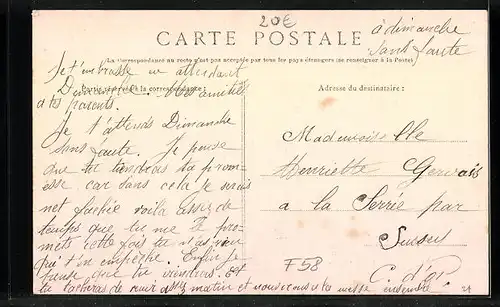 20€
à dimanche
sans faute
CARTE POSTALE
(La Correspondance au recto n'est pas acceptée par tous les pays étrangers (se renseigner à la Poste)
Je t'embrasse en attendant
Dimanche. Mes amitiés
a tes parents.
Partie réservée à la correspondance :
Adresse du destinataire :
Je t'attends Dimanche
sans faute. Je pense
que tu tiendras ta prom-
esse car sans cela je serais
net fachée voila assez de
temps que tu me le pro-
mets cette fois tu n'as rien
qui t'en empêche. Enfin je
pense que tu viendras. Et
tu tacheras de venir assez matin et nous irons a la messe ensemble
Mademoiselle
Henriette Gervais
a la Serrie par
Sussey
C. d'Or.
F58